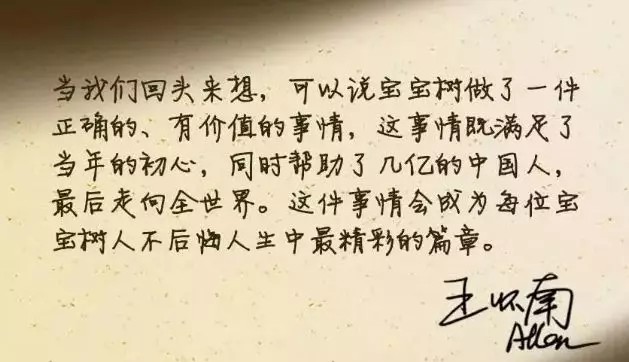 当我们回头来想，可以说宝宝树做了一件
正确的、有价值的事情，这事情既满足了
当年的初心，同时帮助了几亿的中国人，
最后走向全世界。这件事情会成为每位宝
宝树人不后悔人生中最精彩的篇章。
王怀南
Allen